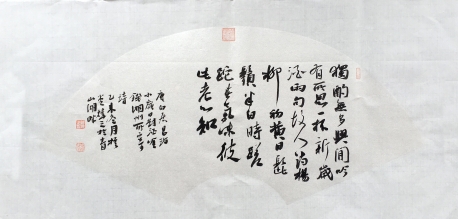 獨酌無多興閒吟
有所思一杯新歲
酒兩句故人詩楊
柳初黃日髭
鬚半白時蹉
跎春氣味彼
此老心知
唐白居易
小歲日對酒吟
錢湖州所寄
詩
乙未冬月
山湖畔